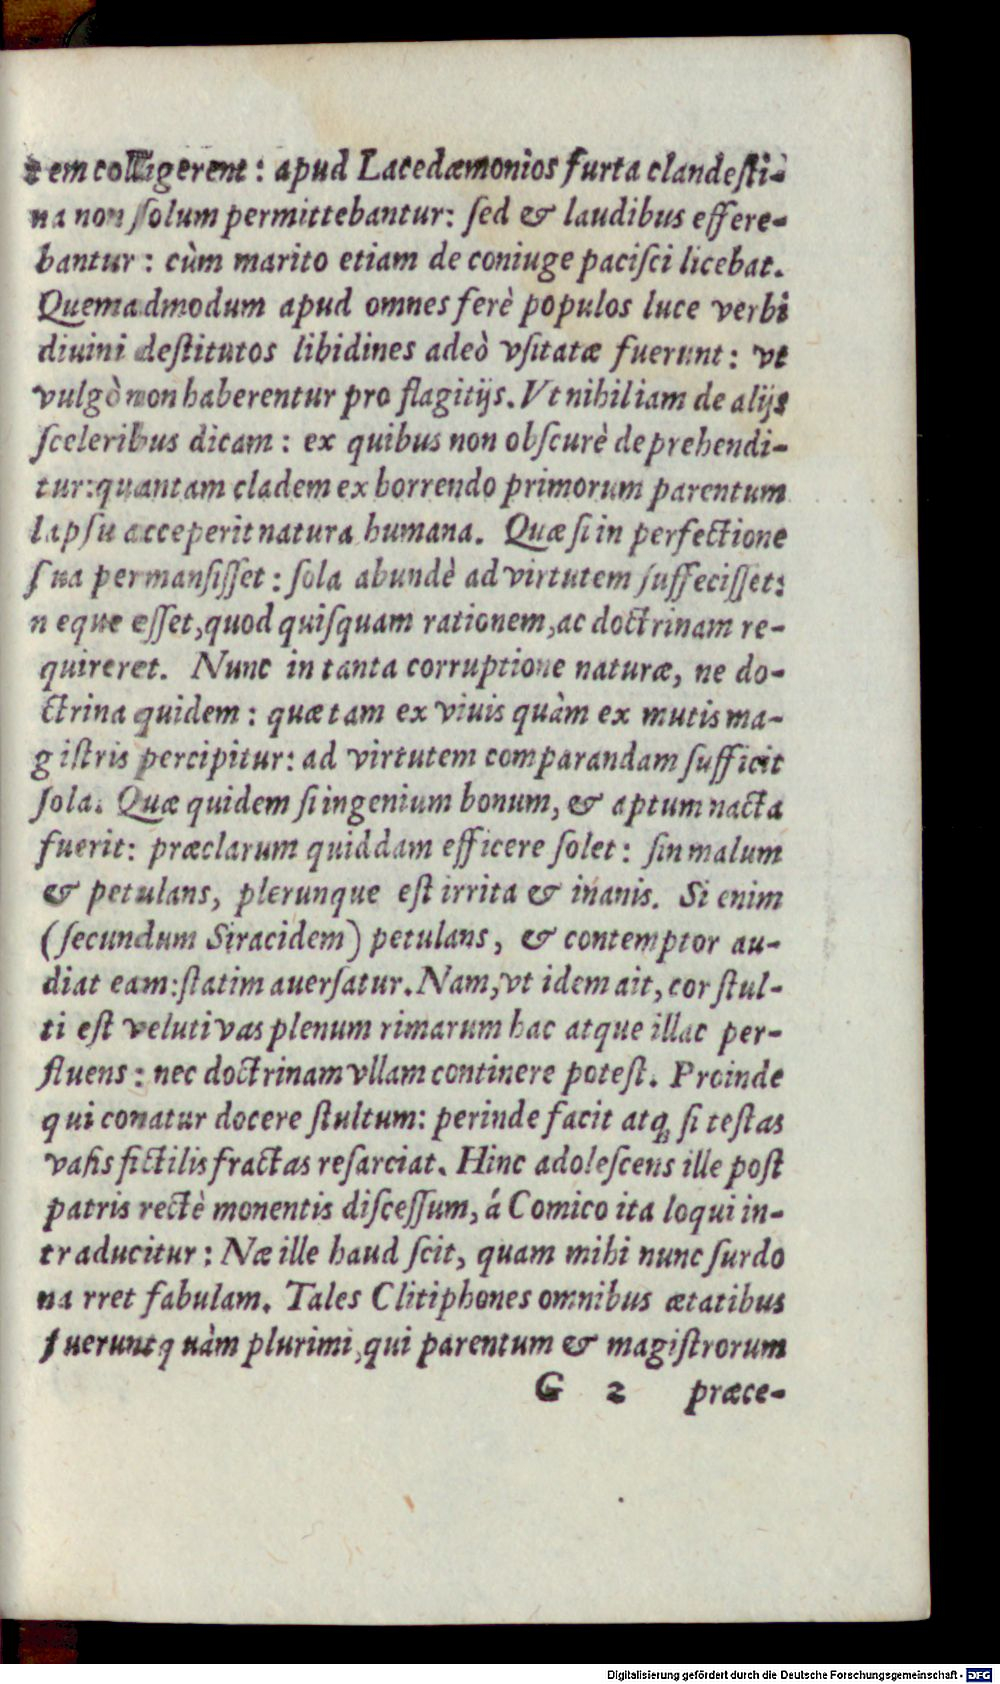 tem colligerent : apud Lacedæmonios furta clandeſti-
na non ſolum permittebantur: ſed & laudibus effere-
bantur : cùm marito etiam de coniuge paciſci licebat.
Quemadmodum apud omnes ferè populos luce verbi
diuini deſtitutos libidines adeò vſitatæ fuerunt : vt
vulgò non haberentur pro flagitijs. Vt nihil iam de alijs
ſceleribus dicam : ex quibus non obſcurè deprehendi-
tur: quantam cladem ex horrendo primorum parentum
lapſu acceperit natura humana. Quæ ſi in perfectione
ſua permanſiſſet : ſola abundè ad virtutem ſuffeciſſet:
neque eſſet, quod quiſquam rationem, ac doctrinam re-
quireret. Nunc in tanta corruptione naturæ, ne do-
ctrina quidem : quæ tam ex viuis quàm ex mutis ma-
giſtris percipitur: ad virtutem comparandam ſufficit
ſola. Quæ quidem ſi ingenium bonum, & aptum nacta
fuerit: præclarum quiddam efficere ſolet : ſin malum
& petulans, plerunque eſt irrita & inanis. Si enim
(ſecundum Siracidem) petulans, & contemptor au-
diat eam: ſtatim auerſatur. Nam, vt idem ait, cor ſtul-
ti eſt veluti vas plenum rimarum hac atque illac per-
fluens : nec doctrinam vllam continere poteſt. Proinde
qui conatur docere ſtultum: perinde facit atq; ſi teſtas
vaſis fictilis fractas reſarciat. Hinc adoleſcens ille poſt
patris rectè monentis diſceſſum, á Comico ita loqui in-
traducitur : Næ ille haud ſcit, quam mihi nunc ſurdo
narret fabulam. Tales Clitiphones omnibus ætatibus
fuerunt quàm plurimi, qui parentum & magiſtrorum
G 2 præce-
Digitalisierung gefördert durch die Deutsche Forschungsgemeinschaft - DFG